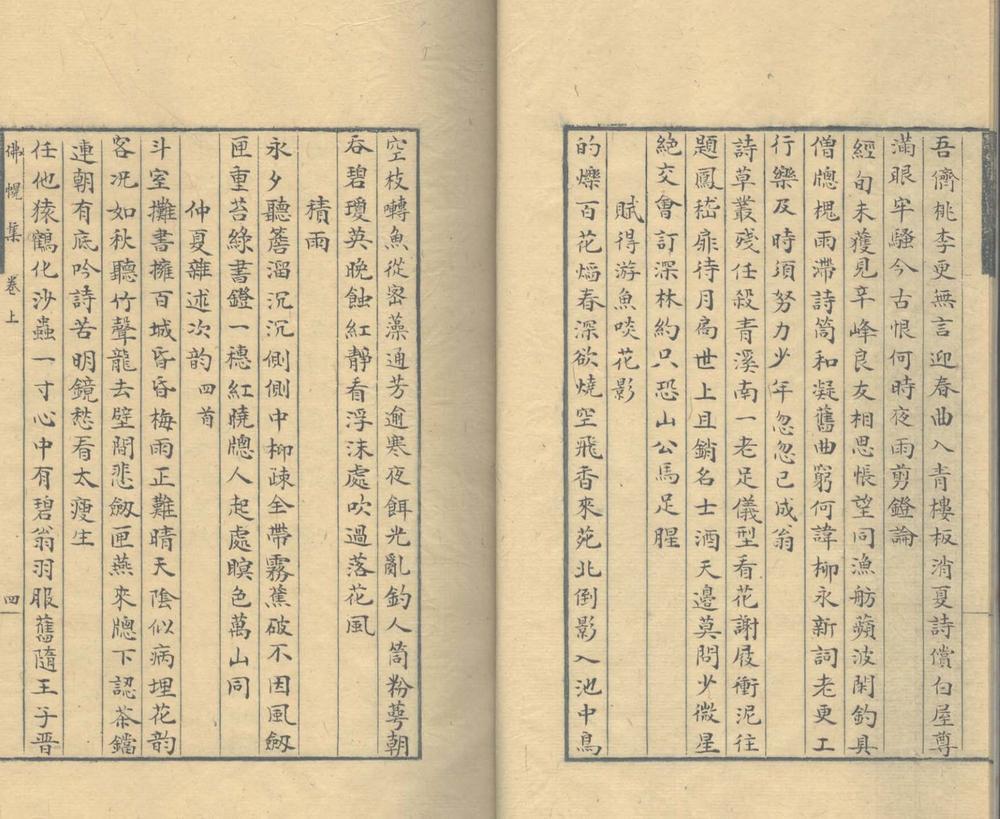 吾儕桃李更無言迎春曲入青樓板消夏詩償白屋尊
滿眼牢騷今古恨何時夜雨剪鐙論
經旬未獲見辛峰良友相思悵望同漁舫蘋波閑釣具
僧牕槐雨滯詩筒和凝舊曲窮何諱柳永新詞老更工
行樂及時須努力少年忽忽已成翁
詩草叢殘任殺青溪南一老足儀型看花謝屐衝泥往
題鳳嵇扉待月扃世上且銷名士酒天邊莫問少微星
絕交會訂深林約只恐山公馬足腥
賦得游魚啖花影
的爍百花燄春深欲燒空飛香來苑北倒影入池中鳥
空枝囀魚從密藻通芳逾寒夜餌光亂釣人筒粉萼朝
吞碧瓊英晚蝕紅靜看浮沫處吹過落花風
積雨
永夕聽簷溜沉沉側側中柳疎全帶霧蕉破不因風劒
匣重苔綠書鐙一穗紅曉牕人起處暝色萬山同
仲夏雜述次韵四首
斗室攤書擁百城昏昏梅雨正難晴天陰似病埋花韵
客况如秋聽竹聲龍去壁間悲劒匣燕來牕下認茶鐺
連朝有底吟詩苦明鏡愁看太瘦生
任他猿鶴化沙蟲一寸心中有碧翁羽服舊隨王子晋
佛幌集 卷上 四